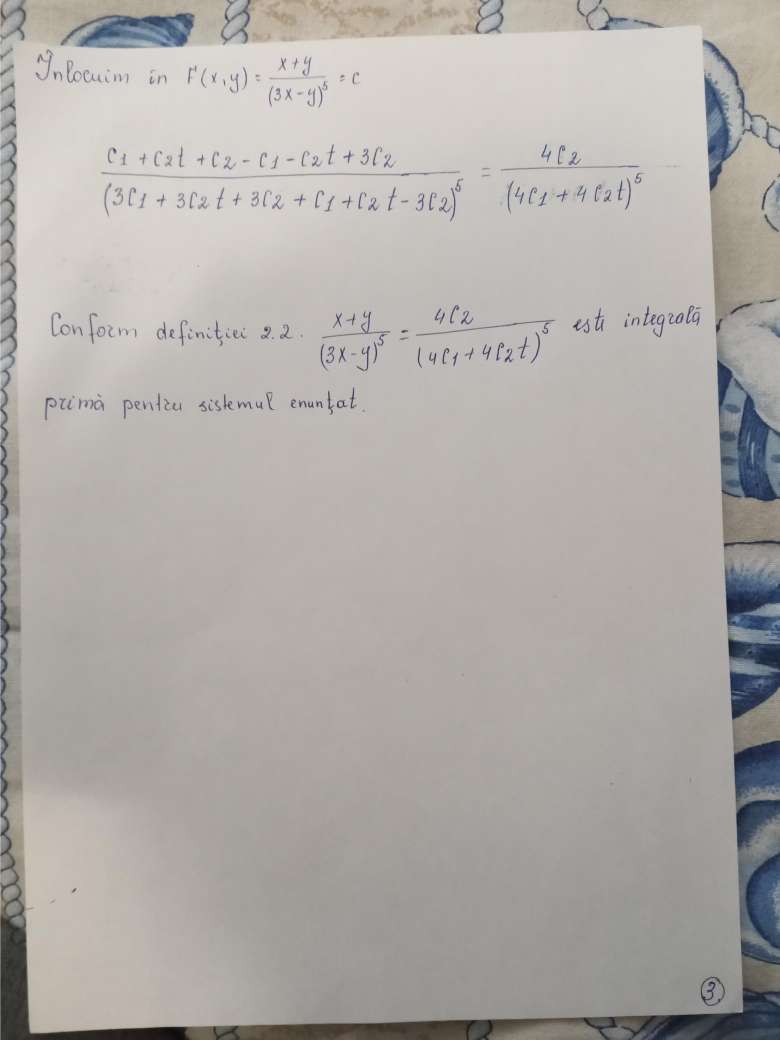 Înlocuim în F(x,y) = \frac{x+y}{(3x-y)^5} = c
\frac{c1 + c2t + c2 - c1 - c2t + 3c2}{(3c1 + 3c2t + 3c2 + c1 + c2t - 3c2)^5} = \frac{4c2}{(4c1 + 4c2t)^5}
Conform definiției 2.2. \frac{x+y}{(3x-y)^5} = \frac{4c2}{(4c1 + 4c2t)^5} esti integrală
primă pentru sistemul enunțat.
3.